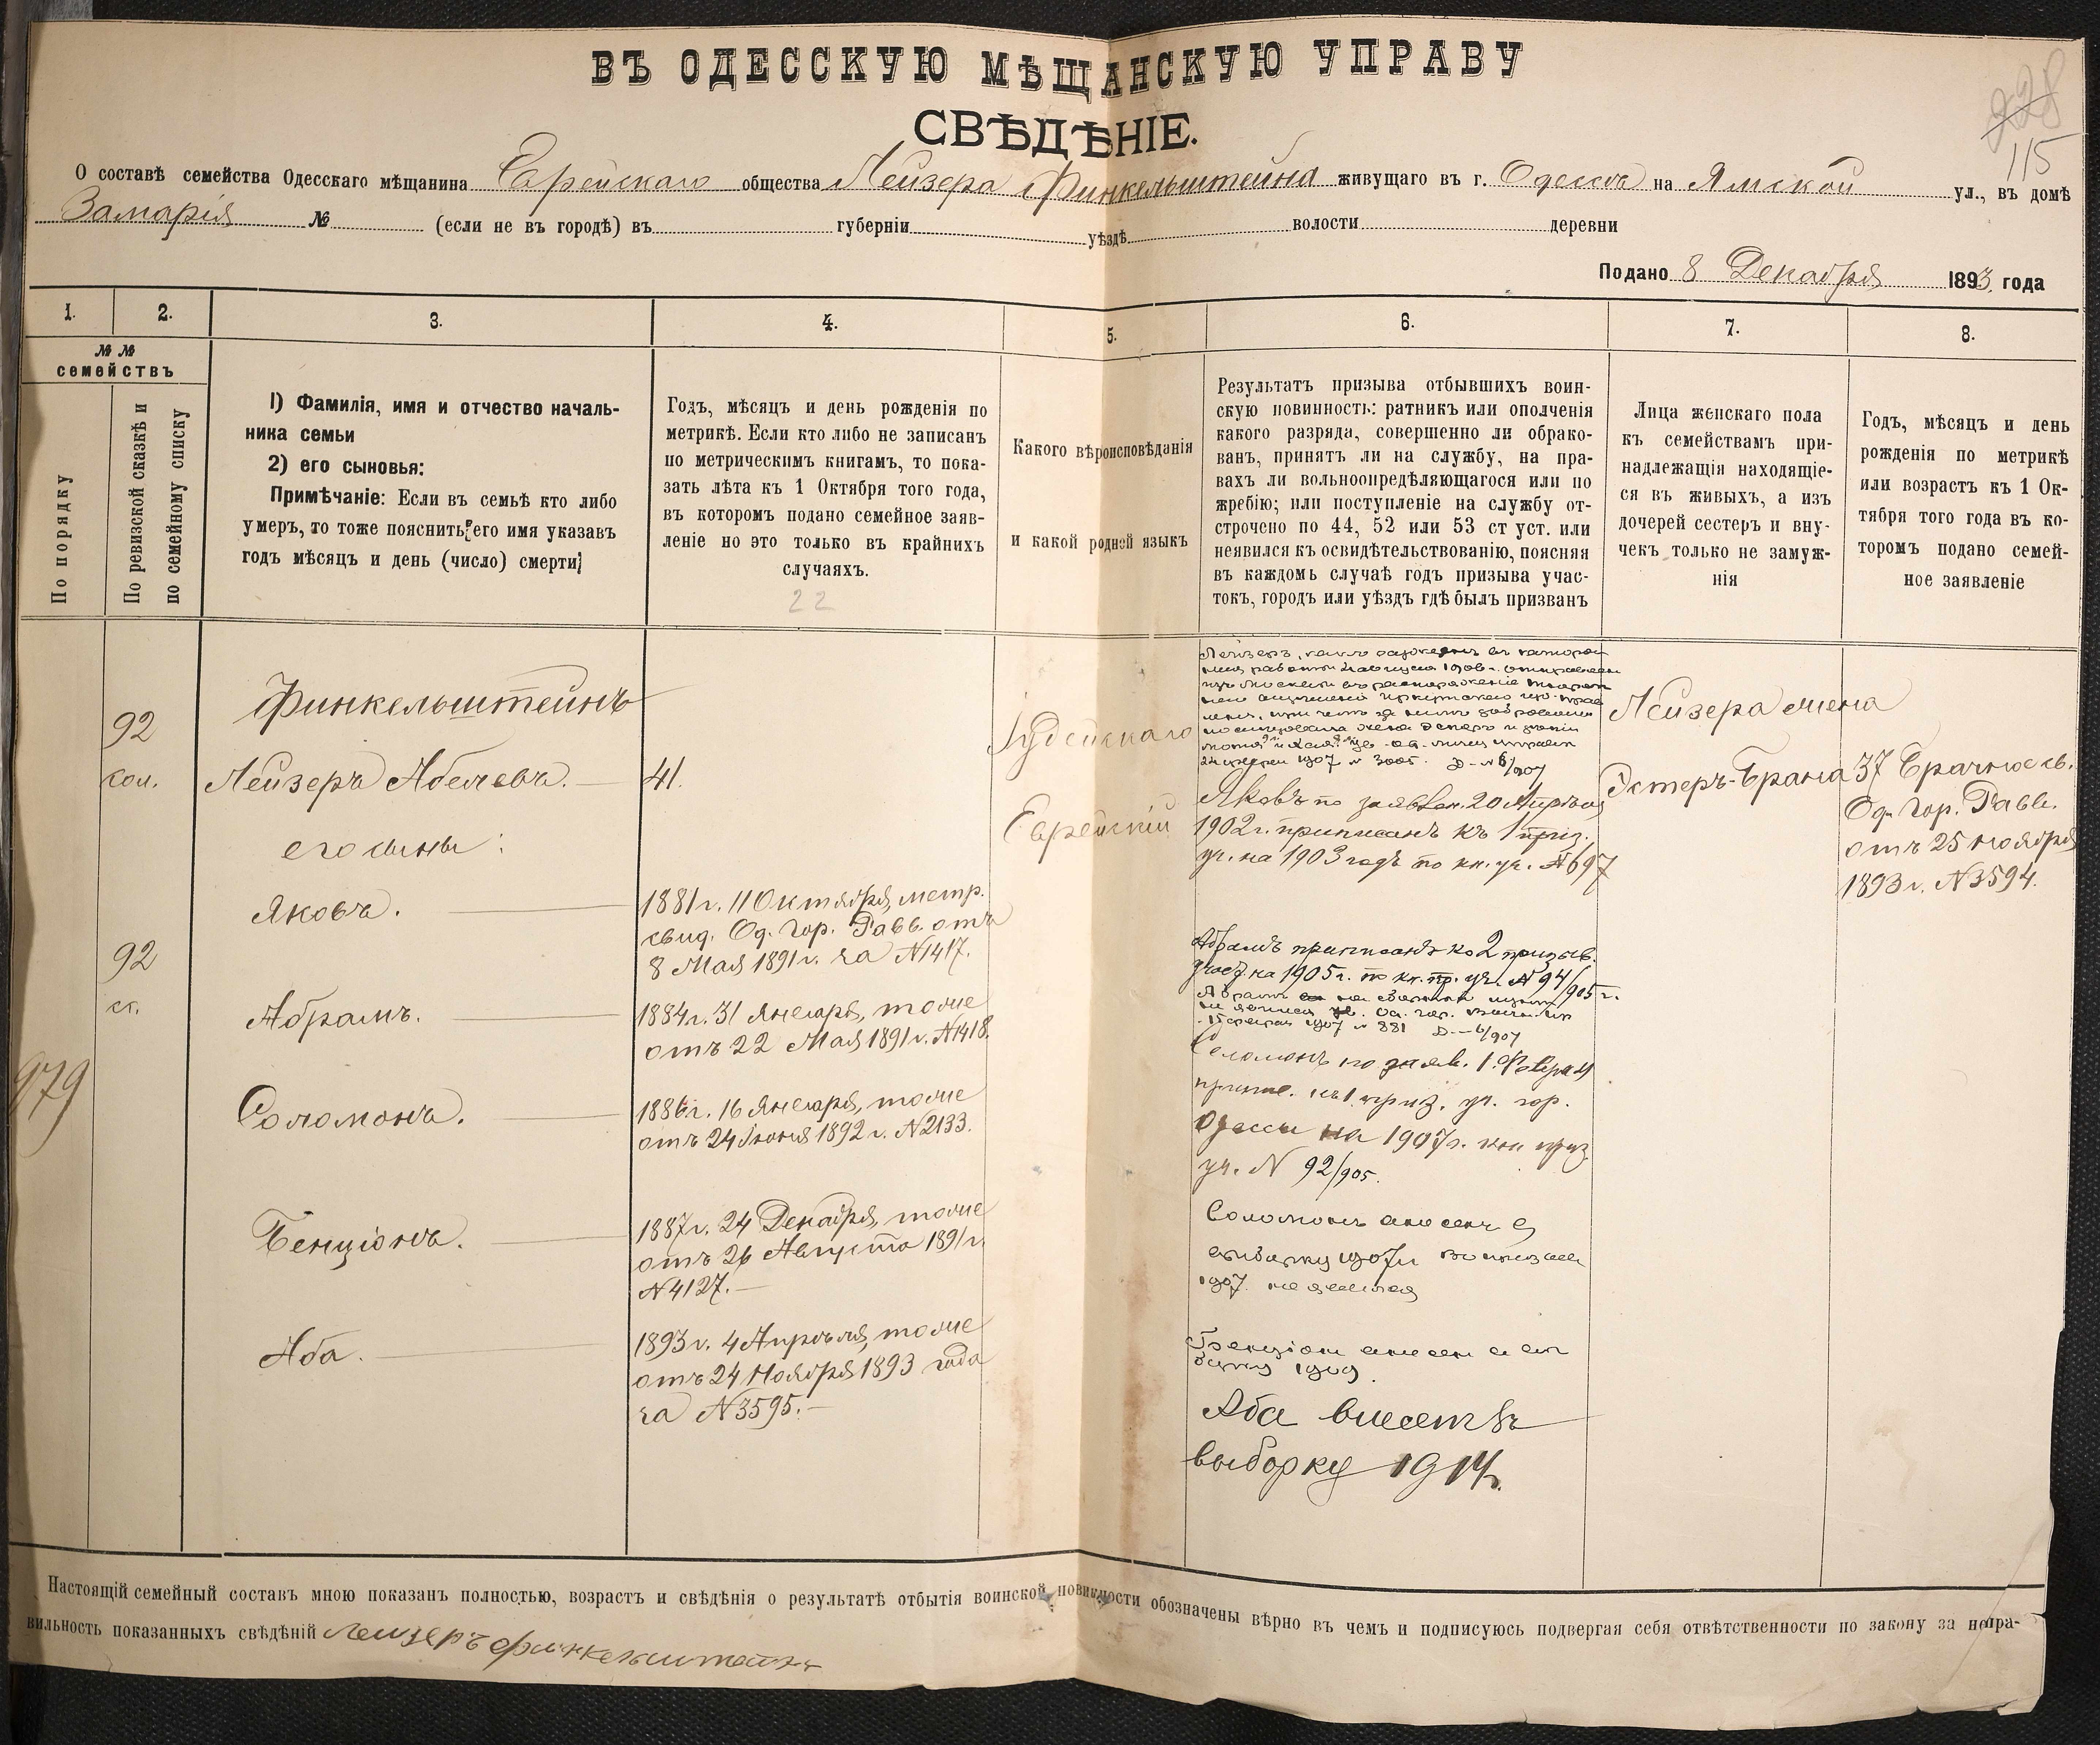 ВЪ ОДЕССКУЮ МѢЩАНСКУЮ УПРАВУ
СВѢДѢНІЕ.
228
115
О составѣ семейства Одесскаго мѣщанина Еврейскаго общества Лейзера Финкельштейна живущаго въ г. Одессѣ на Ямской ул., въ домѣ
Замарія № (если не въ городѣ) въ губерніи уѣздѣ волости деревни
Подано 8 Декабря 1893 года
1. 2. 3. 4. 5. 6. 7. 8.
№ №
семействъ
По порядку
По ревизской сказкѣ и
по семейному списку
1) Фамилія, имя и отчество началь-
ника семьи
2) его сыновья:
Примѣчаніе: Если въ семьѣ кто либо
умеръ, то тоже пояснить его имя указавъ
годъ мѣсяцъ и день (число) смерти
Годъ, мѣсяцъ и день рожденія по
метрикѣ. Если кто либо не записанъ
по метрическимъ книгамъ, то пока-
зать лѣта къ 1 Октября того года,
въ которомъ подано семейное заяв-
леніе но это только въ крайнихъ
случаяхъ.
22
Какого вѣроисповѣданія
и какой родной языкъ
Результатъ призыва отбывшихъ воин-
скую повинность: ратникъ или ополченія
какого разряда, совершенно ли обрако-
ванъ, принятъ ли на службу, на пра-
вахъ ли вольноопредѣляющагося или по
жребію; или поступленіе на службу от-
строчено по 44, 52 или 53 ст уст. или
неявился къ освидѣтельствованію, поясняя
въ каждомъ случаѣ годъ призыва учас-
токъ, городъ или уѣздъ гдѣ былъ призванъ
Лица женскаго пола
къ семействамъ при-
надлежащія находящіе-
ся въ живыхъ, а изъ
дочерей сестеръ и вну-
чекъ только не замуж-
нія
Годъ, мѣсяцъ и день
рожденія по метрикѣ
или возрастъ къ 1 Ок-
тября того года въ ко-
торомъ подано семей-
ное заявленіе
979
92
92
Финкельштейнъ
Лейзеръ Абелевъ.
его сыны:
Яковъ.
Абрамъ.
Соломонъ.
Бенціонъ.
Аба.
41.
1881 г. 11 Октября, метр.
свид. Од. Гор. Равв. отъ
8 Мая 1891 г. за N 1417.
1884 г. 31 Января, тоже
отъ 22 Мая 1891 г. N 1418.
1886 г. 16 Января, тоже
отъ 24 Іюня 1892 г. N 2133.
1887 г. 24 Декабря, тоже
отъ 26 Августа 1891 г.
N 4127.
1893 г. 4 Апрѣля, тоже
отъ 24 Ноября 1893 года
за N 3595.
Іудейскаго
Еврейскій
Яковъ по заявлен. 20 Апрѣля
1902 г. приписанъ къ 1 приз.
уч. на 1903 годъ по кн. уч. N 697
Абрамъ приписанъ ко 2 призыв.
участ. на 1905 г. по кн. пр. уч. N 94/905 г.
Соломонъ по заяв. 1 Февраля
припис. къ 1 приз. уч. гор.
Одессы на 1907 г. кн. приз.
уч. N 92/905.
Соломонъ внесенъ въ
выборку 1907 г.
1907 не явился
Бенціон внесен в вы
борку 1909.
Аба внесенъ
выборку 1914 г.
Лейзера жена
Эстеръ-Брана
37 Брачное св.
Од. Гор. Равв.
отъ 25 ноября
1893 г. N 3594.
Настоящій семейный составъ мною показанъ полностью, возрастъ и свѣдѣнія о результатѣ отбытія воинской повинности обозначены вѣрно въ чемъ и подписуюсь подвергая себя отвѣтственности по закону за непра-
вильность показанныхъ свѣдѣній Лейзеръ Финкельштейнъ